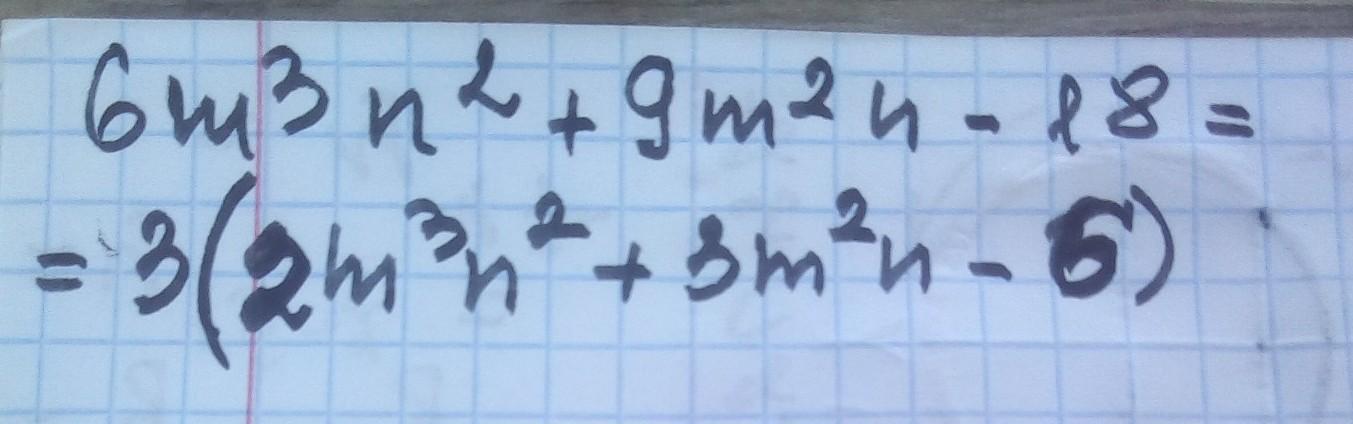 6m³n² + 9m²n - 18 =
= 3(2m³n² + 3m²n - 6)